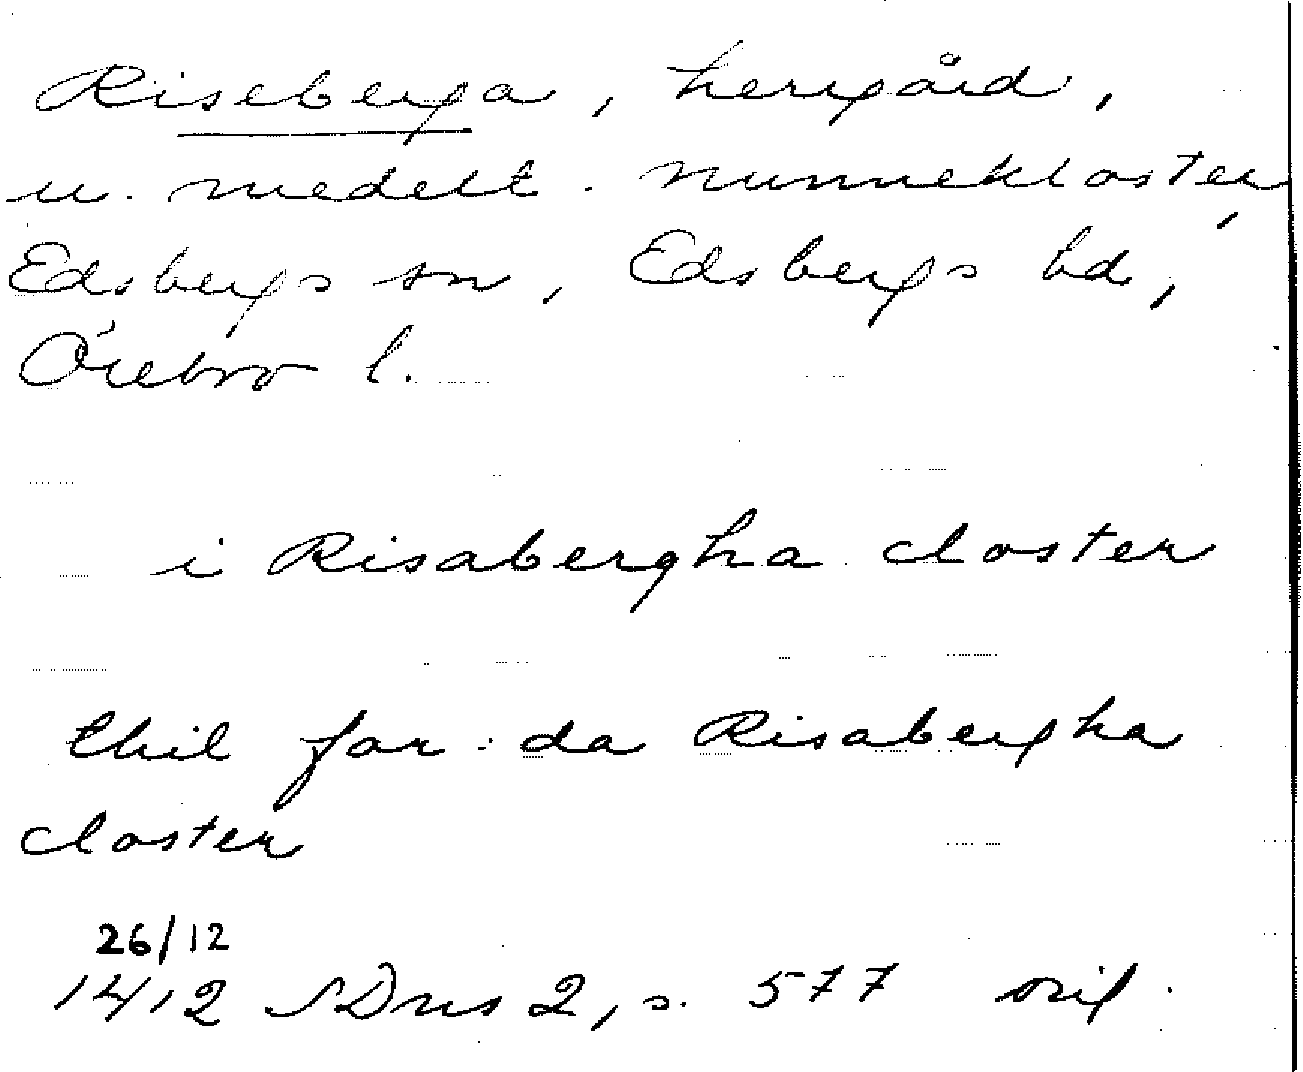 Riseberga, herrgård,
u. medelt. nunnekloster,
Edsbergs sn, Edsbergs hd,
Örebro l.
i Risabergha closter
thil for:da Risabergha
closter
26/12
1412 SDns 2, s. 577 orig.